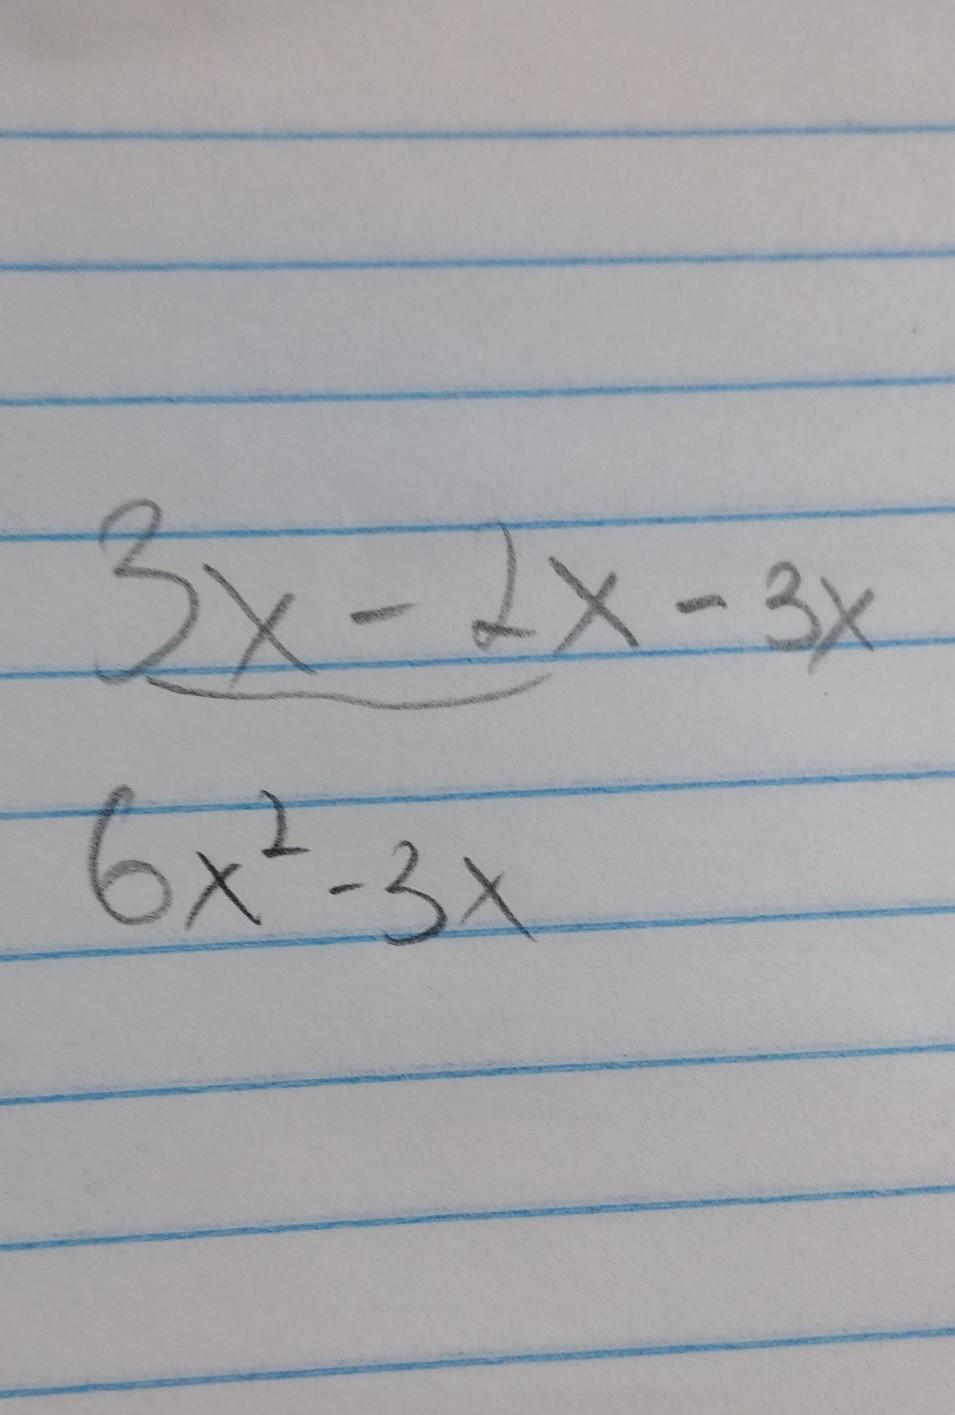 3x - 2x - 3x
6x² - 3x